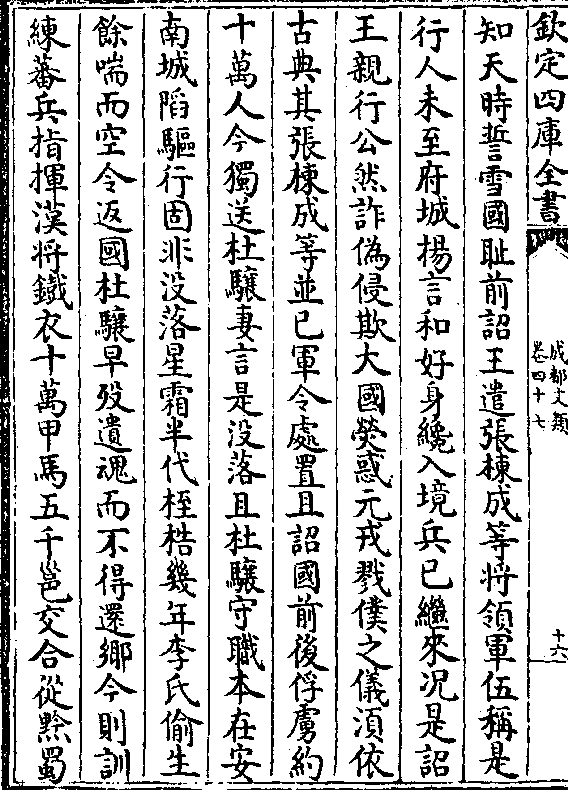 欽定四庫全書
成都文類
卷四十七
十六
知天時誓雪國恥前詔王遣張棟成等將領軍伍稱是
行人未至府城楊言和好身纔入境兵已繼來況是詔
王親行公然詐偽侵欺大國熒惑元戎戮僕之儀湏依
古典其張棟成等並已軍令處置且詔國前後俘虜約
十萬人今獨送杜驤妻言是没落且杜驤守職本在安
南城䧟驅行固非没落星霜半代桎梏幾年李氏偷生
餘喘而空令返國杜驤早殁遺魂而不得還鄉今則訓
練蕃兵指揮漢將鐵衣十萬甲馬五千邕交合從黔蜀